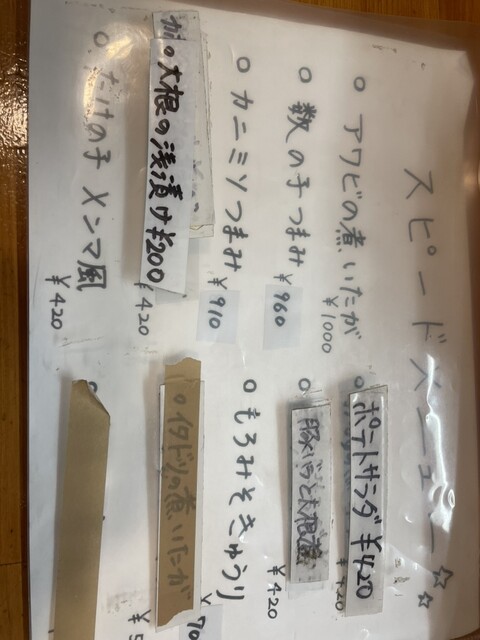 スピードメニュー☆☆
○ アワビの煮いたが
¥1000
○ 数の子つまみ
¥960
○ カニミソつまみ
¥910
○大根の浅漬け¥200
¥420
○ たけの子 メンマ風
¥420
ポテトサラダ ¥420
¥420
○ もろみそきゅうり
○イタドリの煮いたが